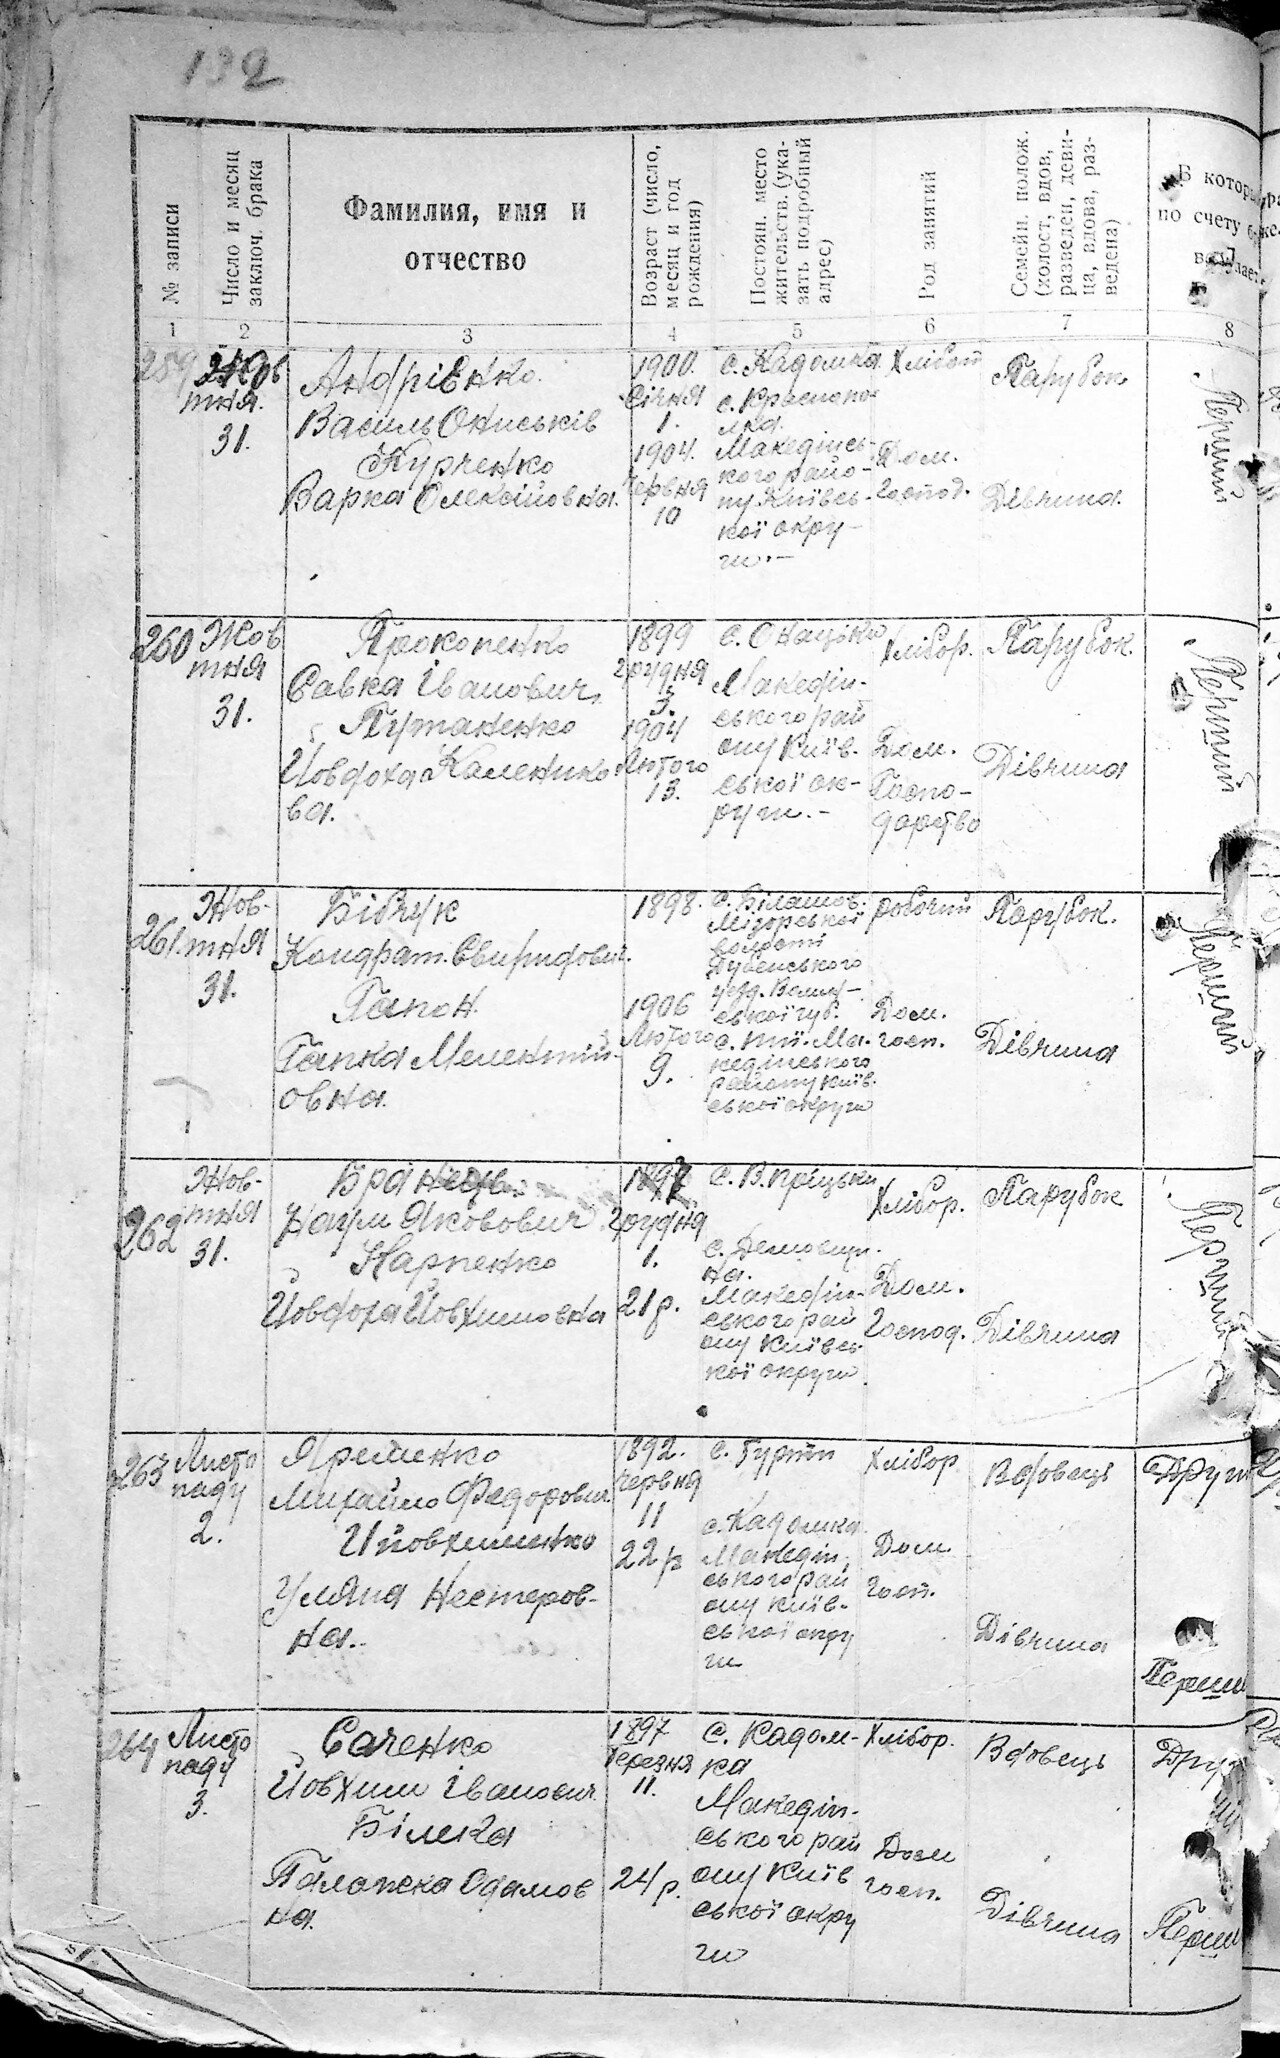 132
№ записи
Число и месяц
заключ. брака
Фамилия, имя и
отчество
Возраст (число,
месяц и год
рождения)
Постоян. место
жительств. (ука-
зать подробный
адрес)
Род занятий
Семейн. полож.
(холост, вдов,
разведен, деви-
ца, вдова, раз-
ведена)
В котор
по счету
1
2
3
4
5
6
7
8
259
Жов
тня.
31.
Андрієнко.
ВасильОниськів
Курченко
Варка Олексійовна.
1900.
Січня
1.
1904.
Червня
10
с. Кадомка
с. Краснопо
лка.
Македінсь-
кого райо-
ну Київсь-
кої окру-
ги.-
Хлібор
Дом.
Господ.
Парубок
Дівчина.
Перший
260
Жов
тня
31.
Прокопенко
Савка Іванович.
Путаненко
Йовдоха Каленико
ва.
1899
грудня
3.
1904
Лютого
13.
с. Онацьки
Македін-
ського рай
ону Київ-
ської ок-
руги.-
Хлібор.
Дом.
Госпо-
дарство
Парубок.
Дівчина
Перший
261.
Жов-
тня
31.
Бівчук
Кондрат. Свиридович.
Гапон.
Гапка Мелентій-
овна.
1898.
1906
Лютого
9.
с. Білашов.
Мізорської
волости
Дубенського
уезд. Волин-
ської губ.
с. тії. Ма-
кедінського
району Київ-
ської округи
робочий
Дом.
госп.
Парубок.
Дівчина
Перший
262
Жов-
тня
31.
Наум Якович
Карпенко
Йовдоха Йовхимовна
грудня
1.
21 р.
с. В. прицьки
с. Демовщи-
на.
Македін-
ського рай
ону Київсь-
кої округи
Хлібор.
Дом.
Господ.
Парубок
Дівчина
Перший
263
Листо
паду
2.
Яременко
Михайло Федорович.
Йовхименко
Уляна Нестеров-
на.-
1892.
Червня
11
22 р
с. Гурти
с. Кадомка
Македін,
ського рай
ону Київ-
ської окру
ги
Хлібор
Дом
Госп.
Вдовець
Дівчина
Други
Перши
264
Листо
паду
3.
Саченко
Йовхим Іванович.
Білека
Палажка Одамов
на.
1897
Березня
11.
24 р.
с. Кадом-
ка
Македін-
ського рай
ону Київ
ської окру
ги
Хлібор.
Дом
госп.
Вдовець
Дівчина
Дру
Перши